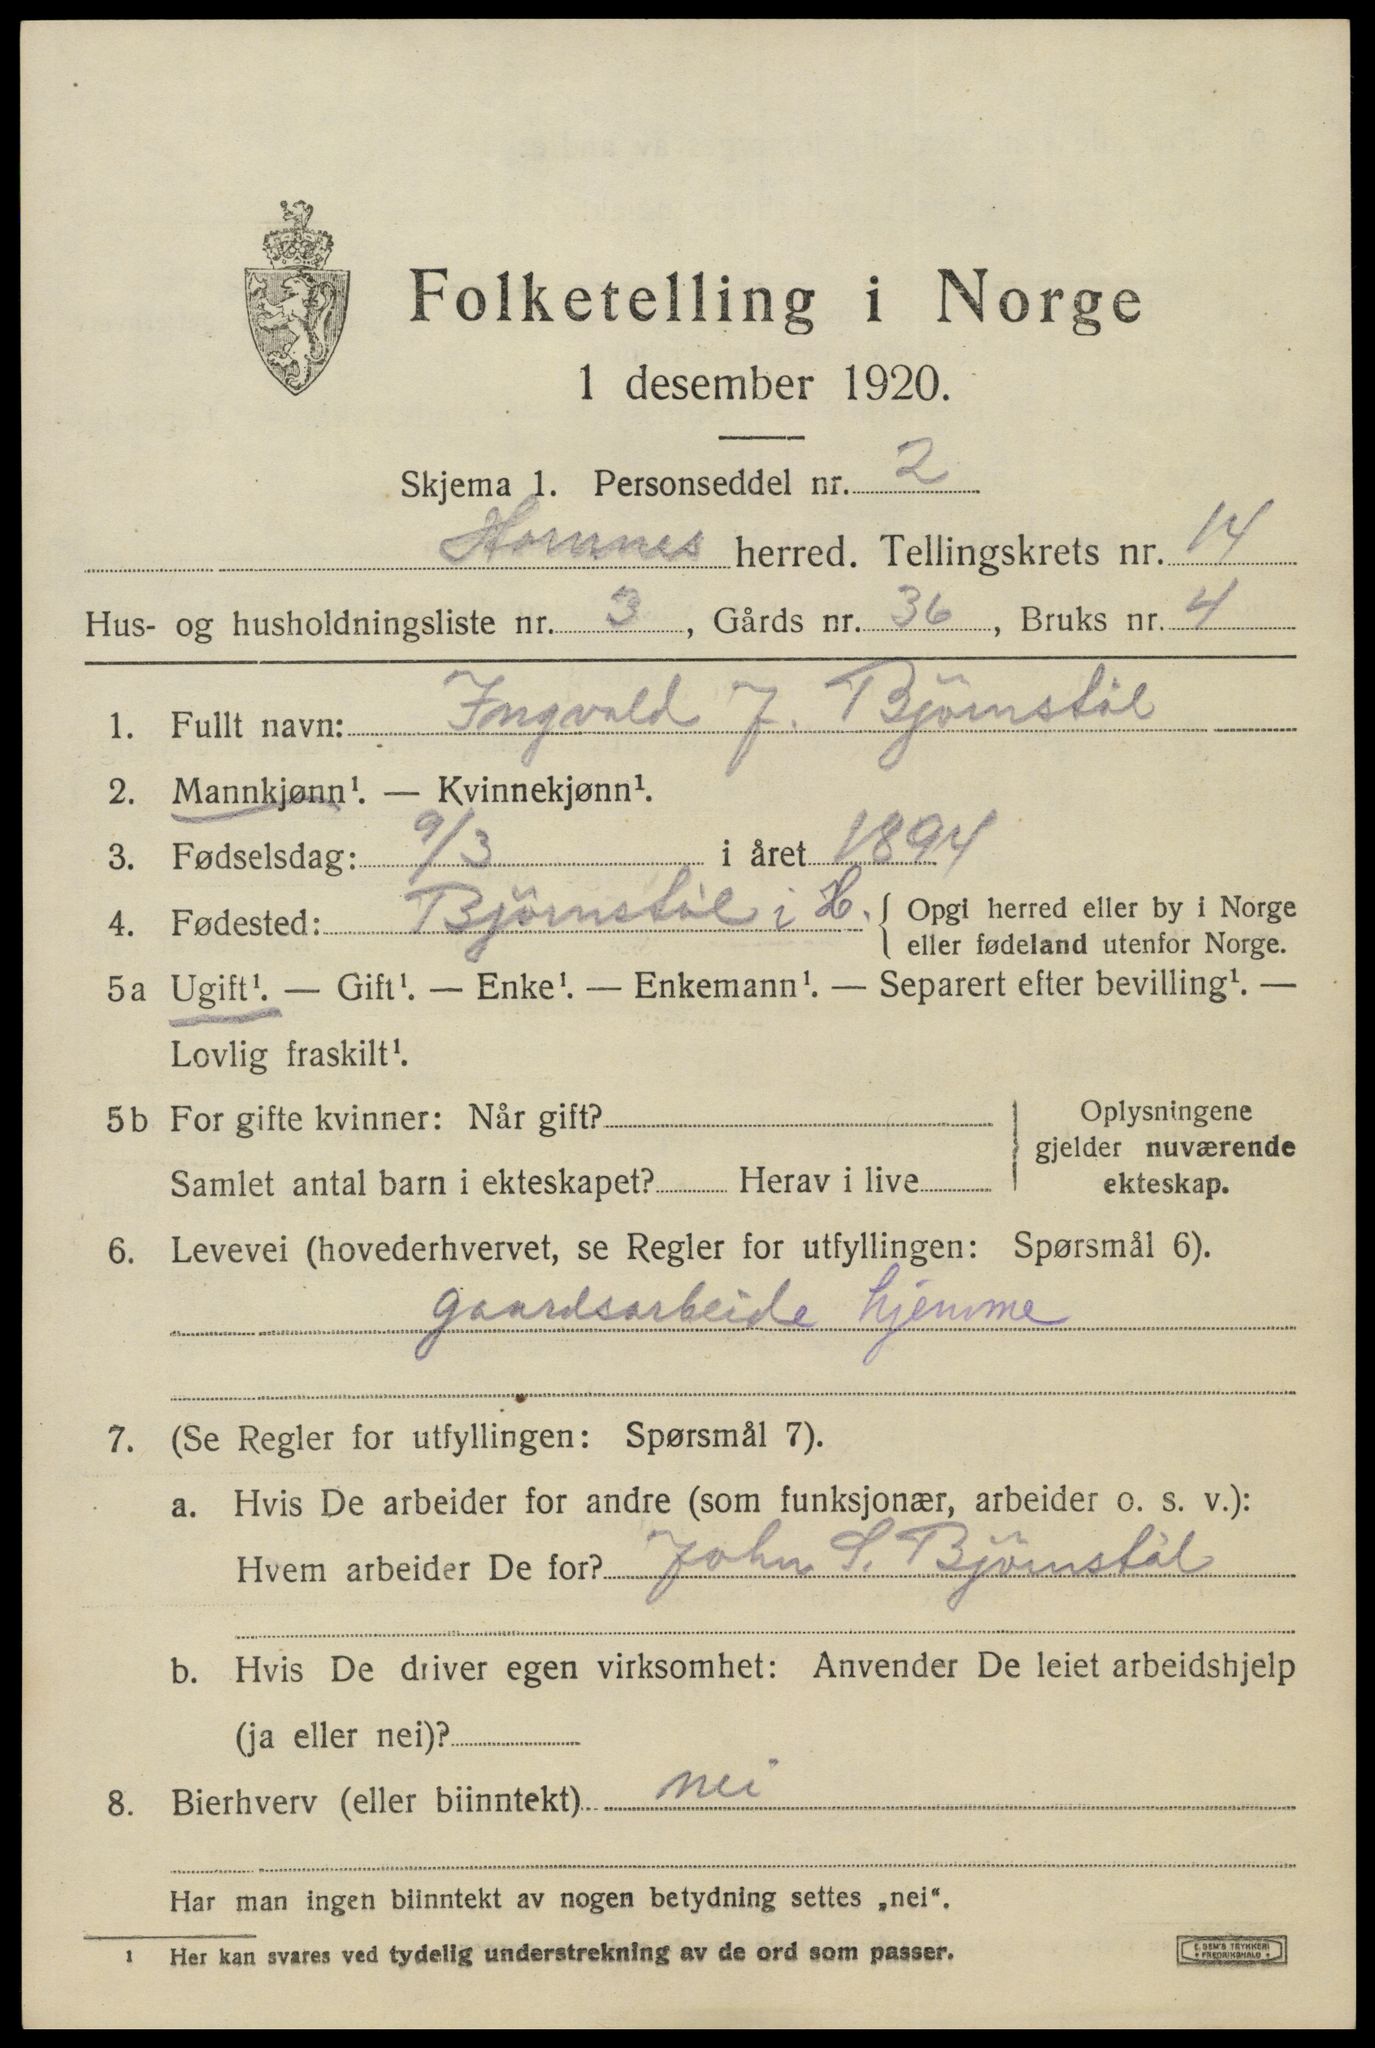 Folketelling i Norge
1 desember 1920.
Skjema 1. Personseddel nr. 2
Hornnes herred. Tellingskrets nr. 14
Hus- og husholdningsliste nr. 3, Gårds nr. 36, Bruks nr. 4
1. Fullt navn: Ingvald J. Björnstöl
2. Mannkjønn¹. — Kvinnekjønn¹.
3. Fødselsdag: 9/3 i året 1894
4. Fødested: Björnstöl i H. { Opgi herred eller by i Norge
eller fødeland utenfor Norge.
5a Ugift¹. — Gift¹. — Enke¹. — Enkemann¹. — Separert efter bevilling¹. —
Lovlig fraskilt¹.
5b For gifte kvinner: Når gift?
Samlet antal barn i ekteskapet? Herav i live
Oplysningene
gjelder nuværende
ekteskap.
6. Levevei (hovederhvervet, se Regler for utfyllingen: Spørsmål 6).
gaardsarbeide hjemme
7. (Se Regler for utfyllingen: Spørsmål 7).
a. Hvis De arbeider for andre (som funksjonær, arbeider o. s. v.):
Hvem arbeider De for? John S. Björnstöl
b. Hvis De driver egen virksomhet: Anvender De leiet arbeidshjelp
(ja eller nei)?
8. Bierhverv (eller biinntekt) nei
Har man ingen biinntekt av nogen betydning settes „nei“.
1 Her kan svares ved tydelig understrekning av de ord som passer.
E. SEM'S TRYKKERI
FREDRIKSHALD